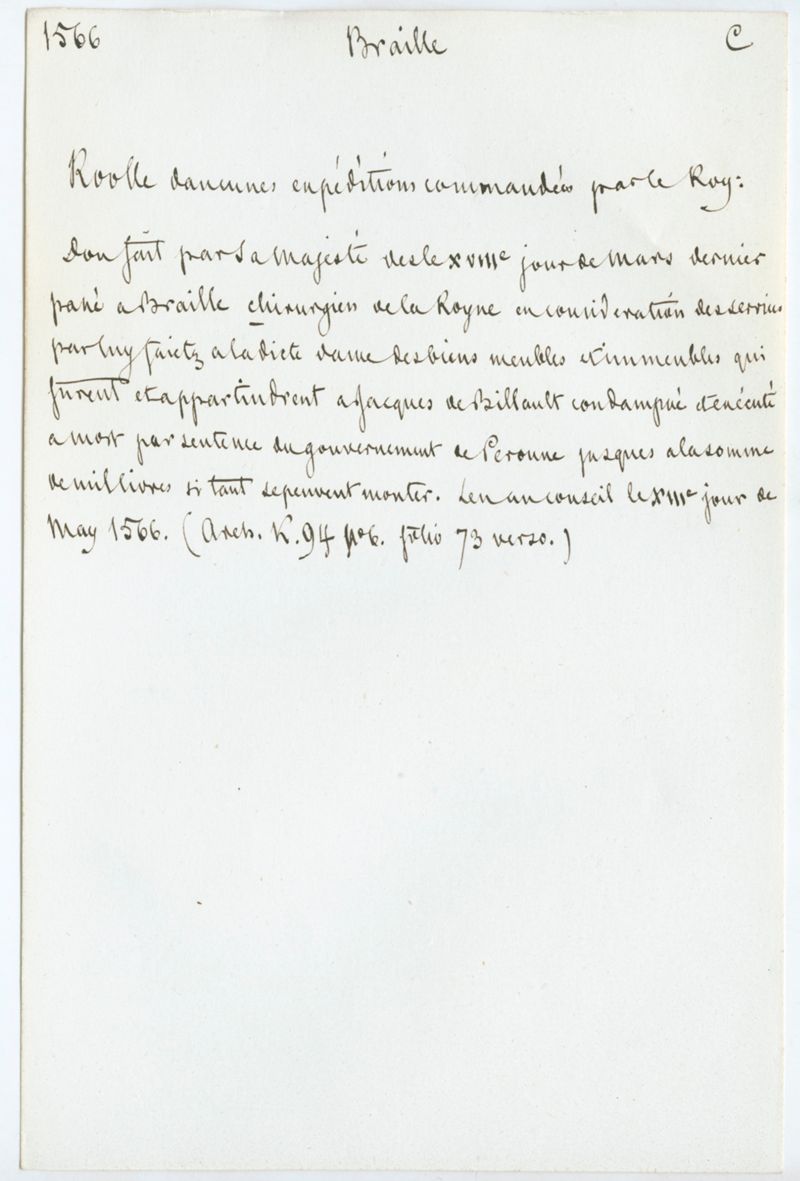 1566 Braille C
Roolle daucunes expéditions commandées par le Roy:
Don fait par Sa Majesté desle xviiie jour de Mars dernier
passé a Braille chirurgien de la Royne en consideration des services
par luy faictz a la dicte dame des biens meubles et immeubles qui
furent et appartindrent a Jacques de Billault condampné et exécuté
a mort par sentence du gouvernement de Peronne jusques a la somme
de mil livres si tant se peuvent monter. Leu au conseil le xiiie jour de
May 1566. (Arch. K. 94 no 6. folio 73 verso.)